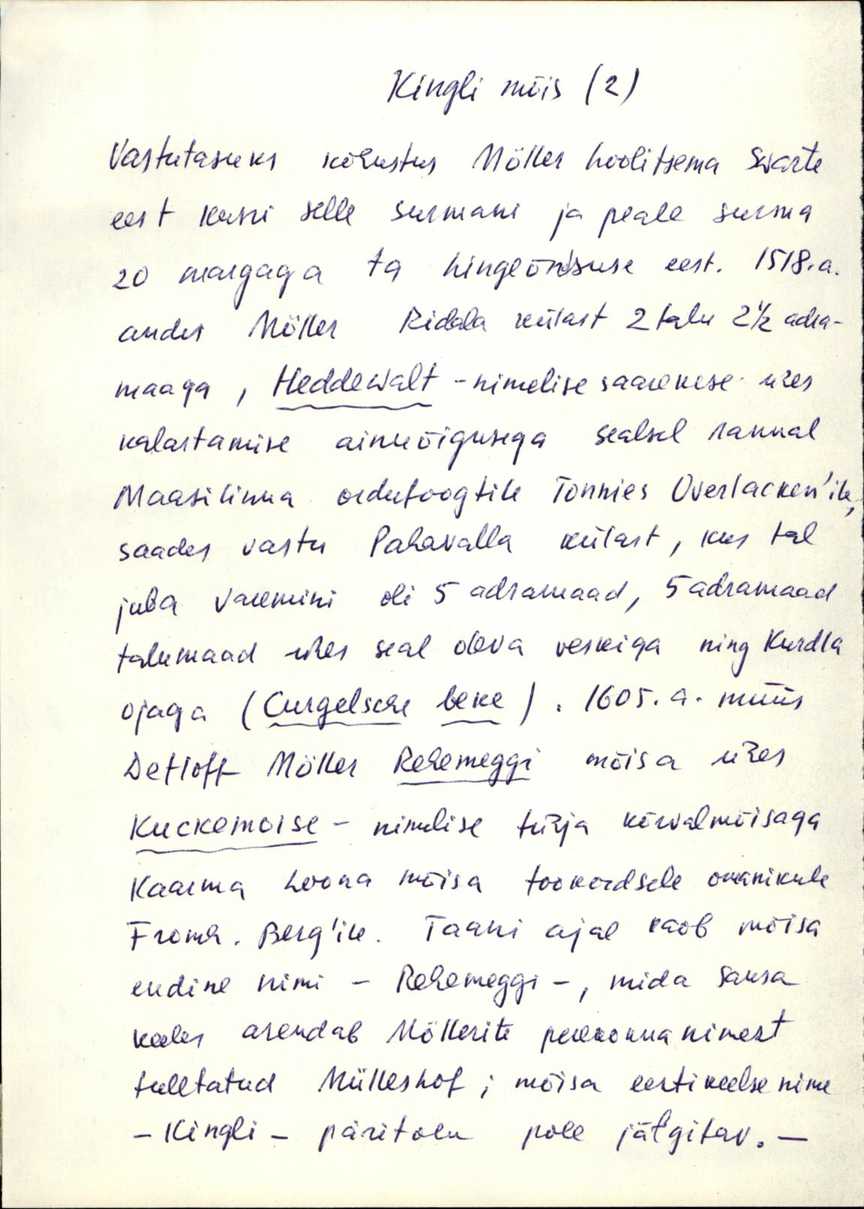 Kingli mõis (2)
Vastutasuks kohustus Möller hoolitsema Swarte
eest kuni selle surmani ja peale surma
20 margaga ta hingeõndsuse eest. 1518.a.
andes Möller Ridala külast 2 talu 2½ adra-
maaga, Heddewalt - nimelise saarekese ühes
kalastamise ainuõigusega sealsel rannal
Maasilinna ordufoogtile Tonnies Overlacken'ile,
saades vastu Pahavalla külast, kus tal
juba varemini oli 5 adramaad, 5 adramaad
talumaad ühes seal oleva veskiga ning Kurdla
ojaga (Curgelsche beke). 1605. a. müüs
Detloff Möller Rehemeggi mõisa ühes
Kuckemoise - nimelise tühja kõrvalmõisaga
Kaarma Loona mõisa tookordsele omanikule
Fromh. Berg'ile. Taani ajal kaob mõisa
endine nimi - Rehemeggi -, mida saksa
keeles asendab Möllerite perekonna nimest
tuletatud Mülleshof; mõisa eestikeelse nime
- Kingli - päritolu pole jälgitav. -